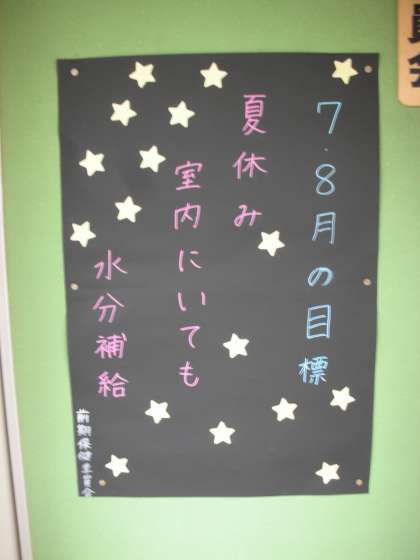 7.8月の目標
夏休み
室内にいても
水分補給
前期保健委員会